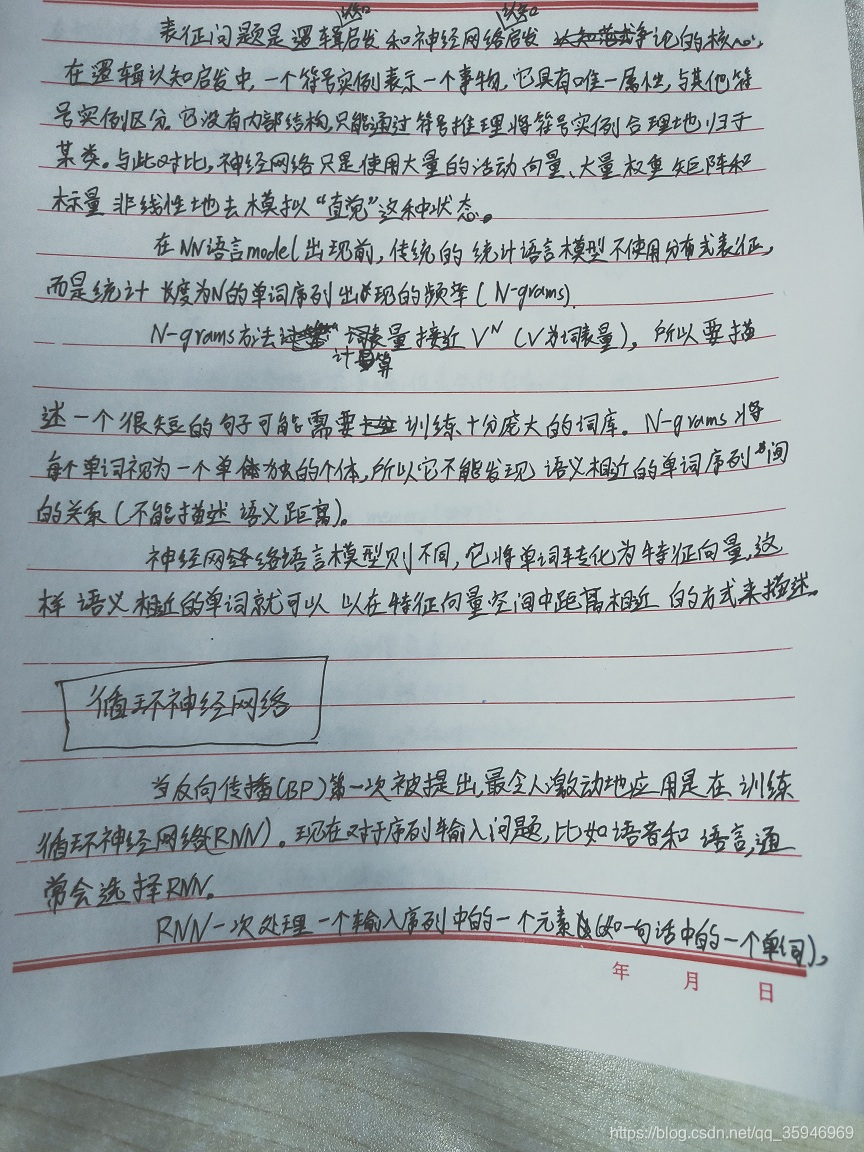 表征问题是逻辑认知启发和神经网络认知启发争论的核心,
在逻辑认知启发中,一个符号实例表示一个事物,它具有唯一属性,与其他符
号实例区分。它没有内部结构,只能通过符号推理将符号实例合理地归于
某类。与此对比,神经网络只是使用大量的活动向量、大量权重矩阵和
标量非线性地去模拟“直觉”这种状态。
在NN语言model出现前,传统的统计语言模型不使用分布式表征,
而是统计长度为N的单词序列出现的频率(N-grams).
N-grams方法计算量接近V^N(V为词表量),所以要描
述一个很短的句子可能需要训练十分庞大的词库。N-grams将
每个单词视为一个单独的个体,所以它不能发现语义相近的单词序列间
的关系(不能描述语义距离)。
神经网络语言模型则不同,它将单词转化为特征向量,这
样语义相近的单词就可以以在特征向量空间中距离相近的方式来描述。
循环神经网络
当反向传播(BP)第一次被提出,最令人激动地应用是在训练
循环神经网络(RNN)。现在对于序列输入问题,比如语音和语言,通
常会选择RNN。
RNN一次处理一个输入序列中的一个元素(如一句话中的一个单词),
年 月 日
https://blog.csdn.net/qq_35946969